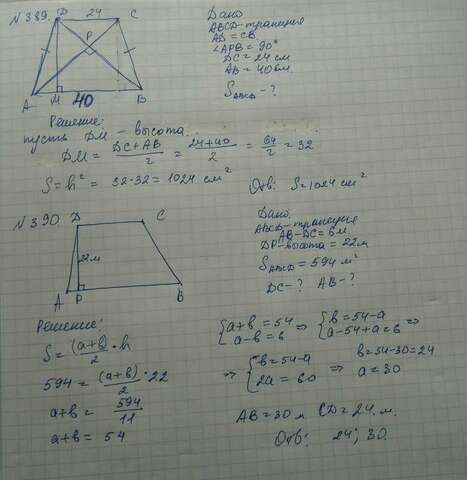 N 389.
D 24 C
P
A M 40 B
Дано
ABCD-трапеция
AD = CB.
∠APB = 90°
DC = 24 см
AB = 40 см.
S ABCD - ?
Решение:
пусть DM - высота.
DM = DC+AB/2 = 24+40/2 = 64/2 = 32
S = h² = 32·32 = 1024 см²
Отв: S = 1024 см²
N 390.
D C
22м
A P B
Дано.
ABCD - трапеция
AB-DC = 6м.
DP-высота = 22м
S ABCD = 594 м²
DC-? AB-?
Решение:
S = (a+b)/2 · h
594 = (a+b)/2 · 22
a+b = 594/11
a+b = 54
{a+b = 54
a-b = 6 ⇒ {b = 54-a
a-54+a = 6 ⇒
⇒ {b = 54-a
2a = 60 ⇒ b = 54-30 = 24
a = 30
AB = 30 м CD = 24 м.
Отв: 24; 30.